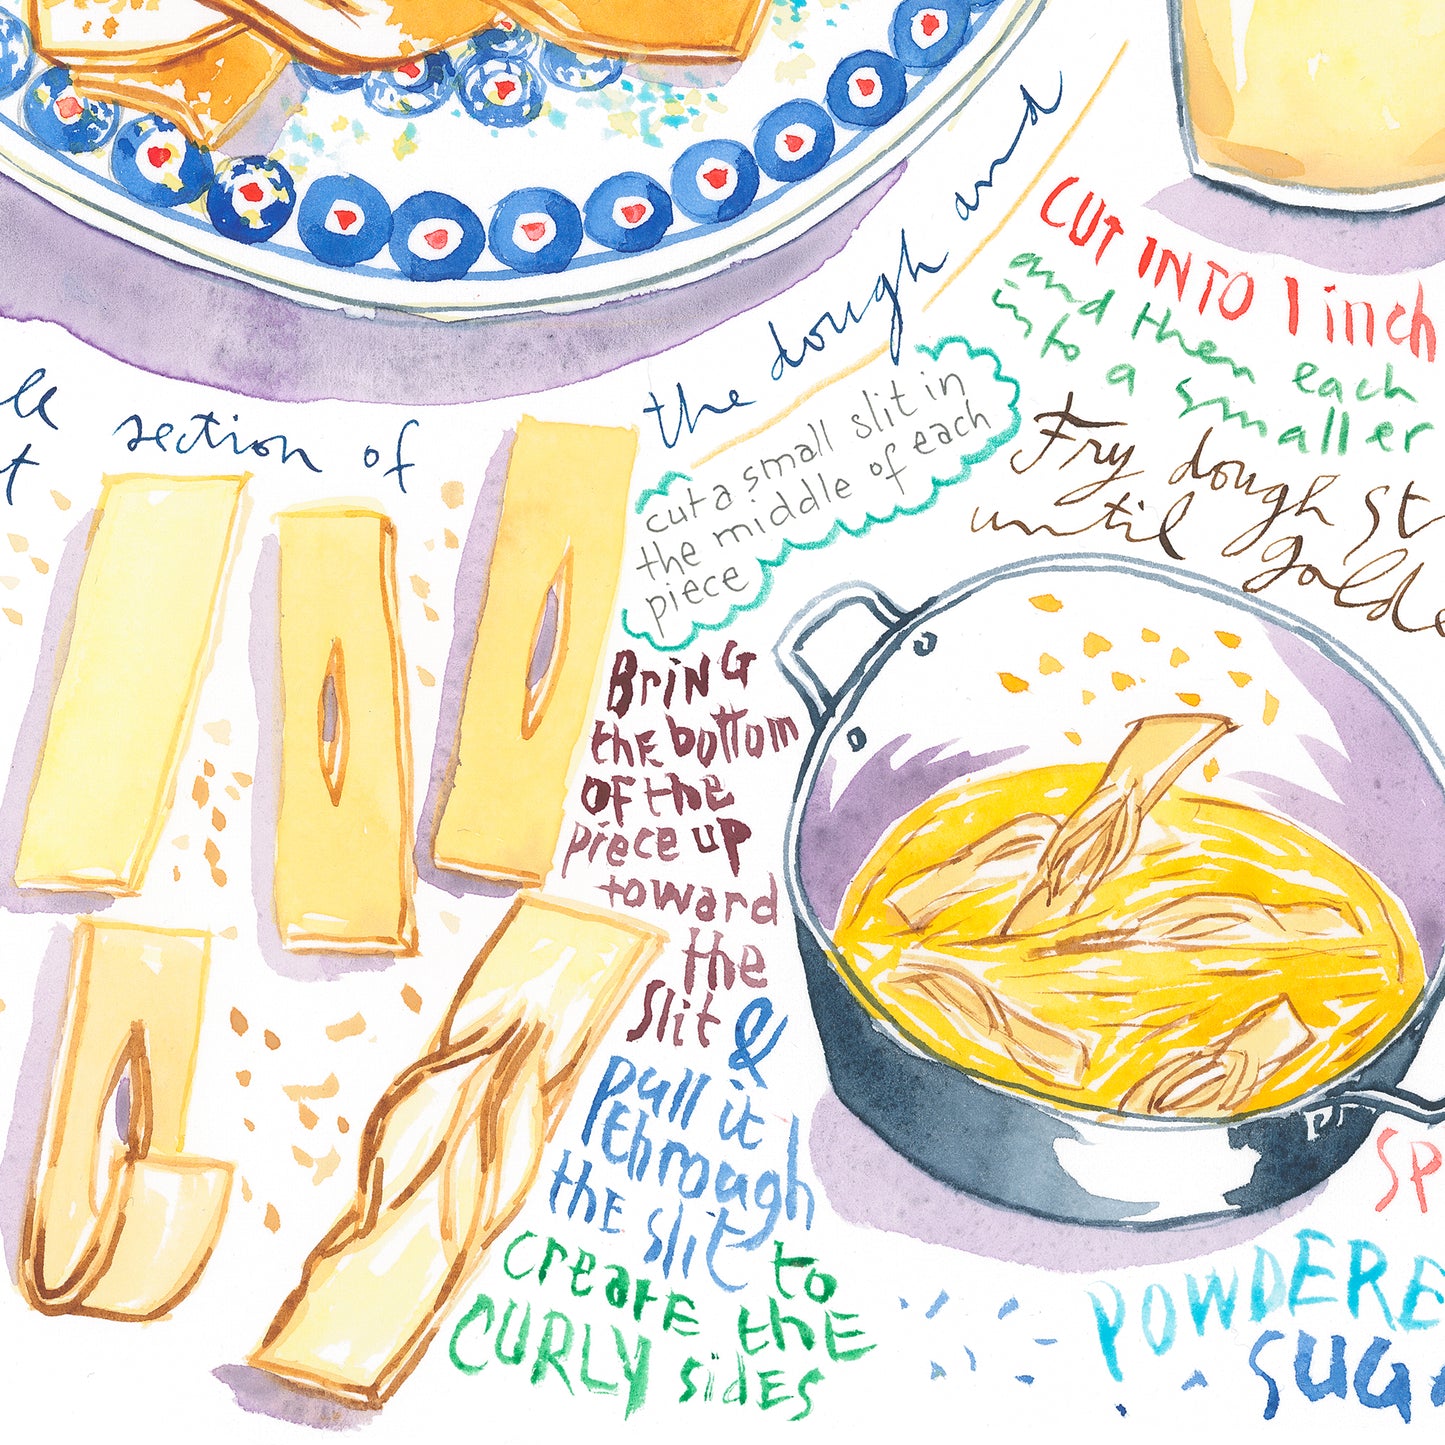 section of
the dough and
cut a small slit in
the middle of each
piece
CUT INTO 1 inch
and then each
into a smaller
Fry dough st
until golde
BRING
the bottom
OF the
piece up
toward
the
slit &
pull it
through
the slit
to
create the
CURLY sides
SP
POWDERE
SUGA